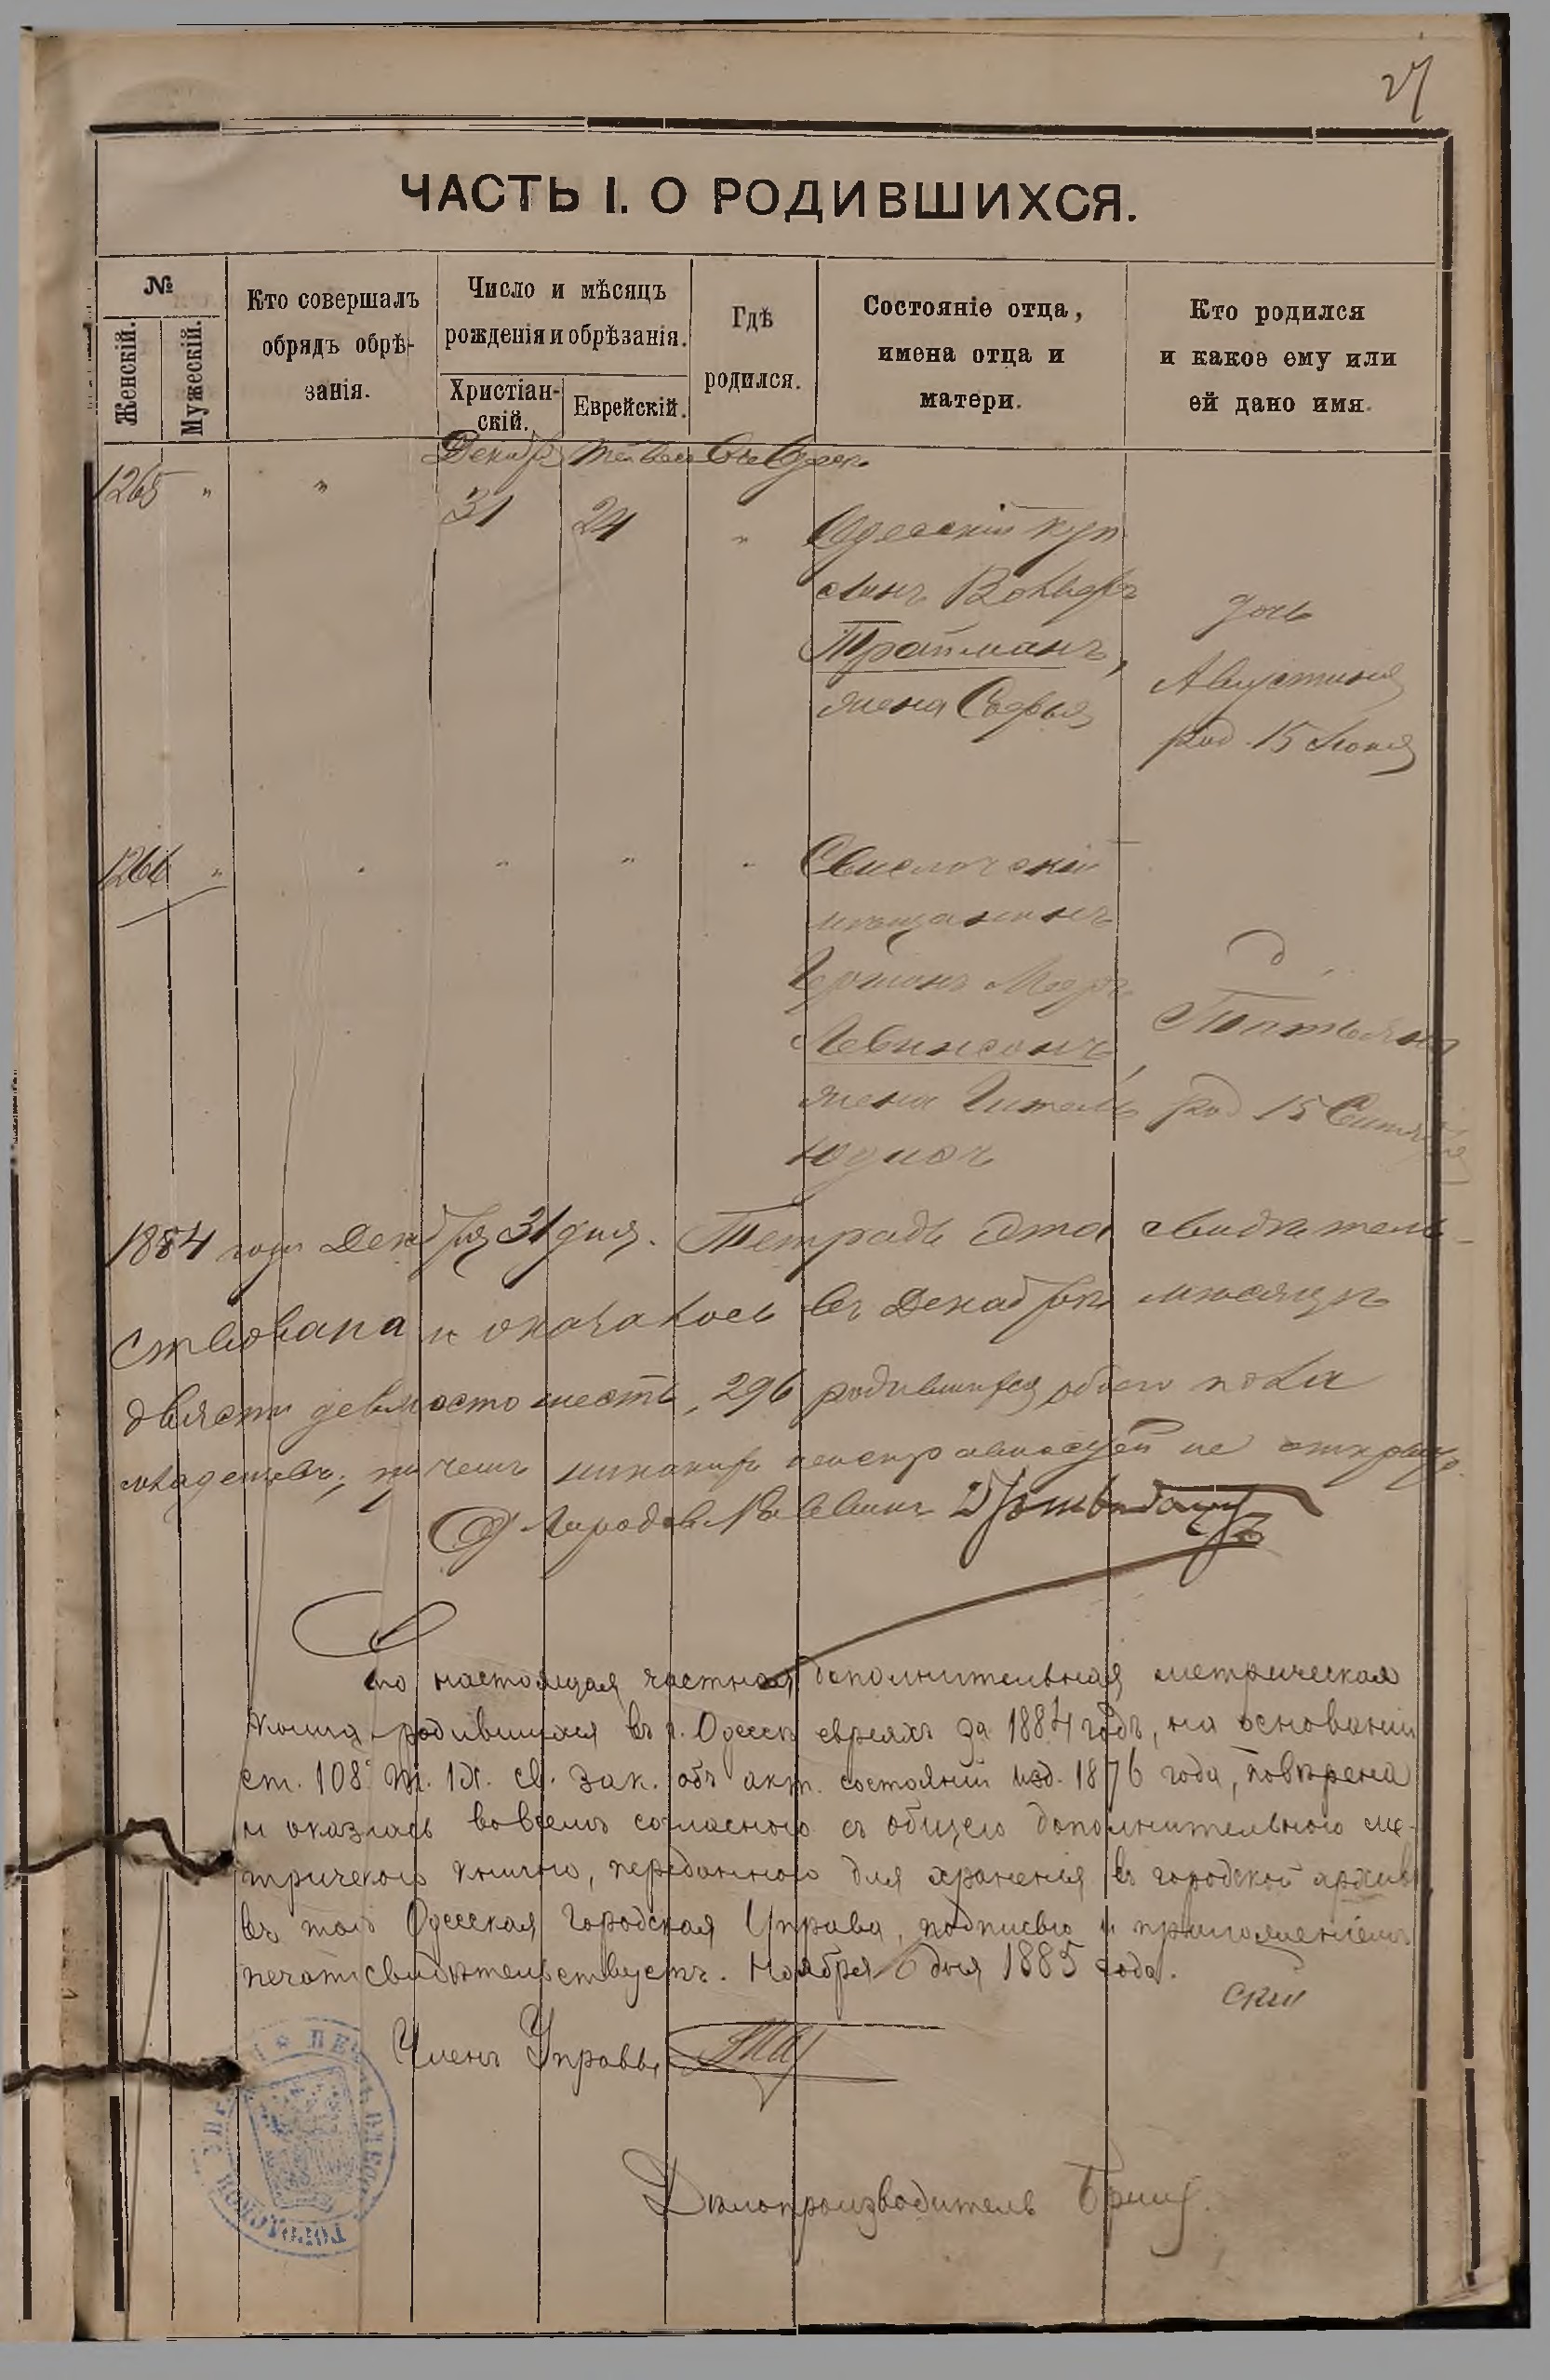 ЧАСТЬ I. О РОДИВШИХСЯ.
№
Женскій.
Мужескій.
Кто совершалъ
обрядъ обрѣ-
занія.
Число и мѣсяцъ
рожденія и обрѣзанія.
Христіан-
скій.
Еврейскій.
Гдѣ
родился.
Состояніе отца,
имена отца и
матери.
Кто родился
и какое ему или
ей дано имя.
Декабр
1265 " "
31 24 " Одесскій куп
Вольфъ
Траппманъ,
жена Софья
дочь
Августина
род. 15 Іюня
1266 " " " " " Свислочскій
мѣщанинъ
Левинсонъ,
жена Гитель
д.
род 15
1884 года Декабря 31 дня. Тетрадь эта свидѣтель-
ствована и оказалось въ Декабрѣ мѣсяцѣ
двѣсти девяносто шесть, 296 родившихся обоего пола
младенцевъ, при чемъ никакихъ неисправностей не
Городов. Раввинъ
Что настоящая частная дополнительная метрическая
книга родившихся въ г. Одессѣ евреяхъ за 1884 годъ, на основаніи
ст. 108 т. IX. св. зак. объ акт. состояній изд. 1876 года, повѣрена
и оказлась вовсемъ согласною съ общею дополнительною ме-
трическою книгою, переданною для храненія въ городской архивъ
въ томъ Одесская Городская Управа, подписью и приложеніемъ
печати свидѣтельствуетъ. Ноября 6 дня 1885 года.
Членъ Управы
Дѣлопроизводитель